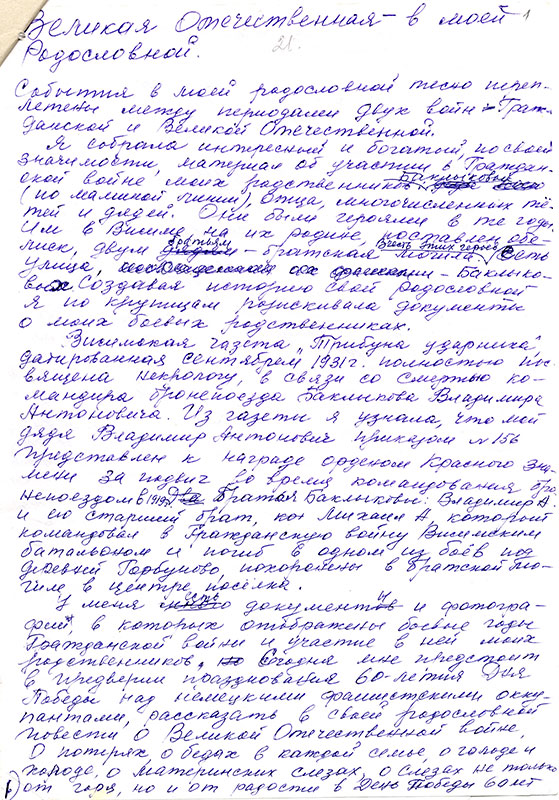 Великая Отечественная – в моей 1
Родословной.
21.
События в моей родословной тесно переп-
летены между периодами двух войн – Граж-
данской и Великой Отечественной.
Я собрала интересный и богатый по своей
значимости, материал об участии в Граждан-
ской войне моих родственников Баклыковых
(по маминой линии), отца, многочисленных тё-
тей и дядей. Они были героями в те годы.
Им в Висиме, на их родине, поставлен обе-
лиск, двум братьям – братская могила. В честь этих героев есть
улица, – Баклыко-
вых. Создавая историю своей родословной
я по крупицам разыскивала документы
о моих боевых родственниках.
Висимская газета „Трибуна ударника",
датированная сентябрём 1931 г. полностью пос-
вящена некрологу, в связи со смертью ко-
мандира бронепоезда Баклыкова Владимира
Антоновича. Из газеты я узнала, что мой
дядя Владимир Антонович приказом № 156
представлен к награде орденом Красного Зна-
мени за подвиг во время командования бро-
непоездом в 1919 г. Два брата Баклыковы: Владимир А
и его старший брат, Михаил А который
командовал в Гражданскую войну Висимским
батальоном и погиб в одном из боёв под
деревней Горбуново похоронены в братской мо-
гиле в центре посёлка.
У меня есть документы и фотогра-
фии, в которых отображены боевые годы
Гражданской войны и участие в ней моих
родственников, Сегодня мне предстоит
в преддверии празднования 60-летия Дня
Победы над немецкими фашистскими окку-
пантами, рассказать в своей родословной
повести о Великой Отечественной войне,
О потерях о бедах в каждой семье, о голоде и
холоде, о материнских слезах, о слезах не только
от горя, но и от радости в День Победы 60 лет